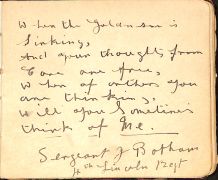 When the Golden sun is
Sinking,
And your thoughts from
Care are free,
When of others you
are thinking,
Will you Sometimes
think of Me.
Sergeant J Botham
Lincoln Regt